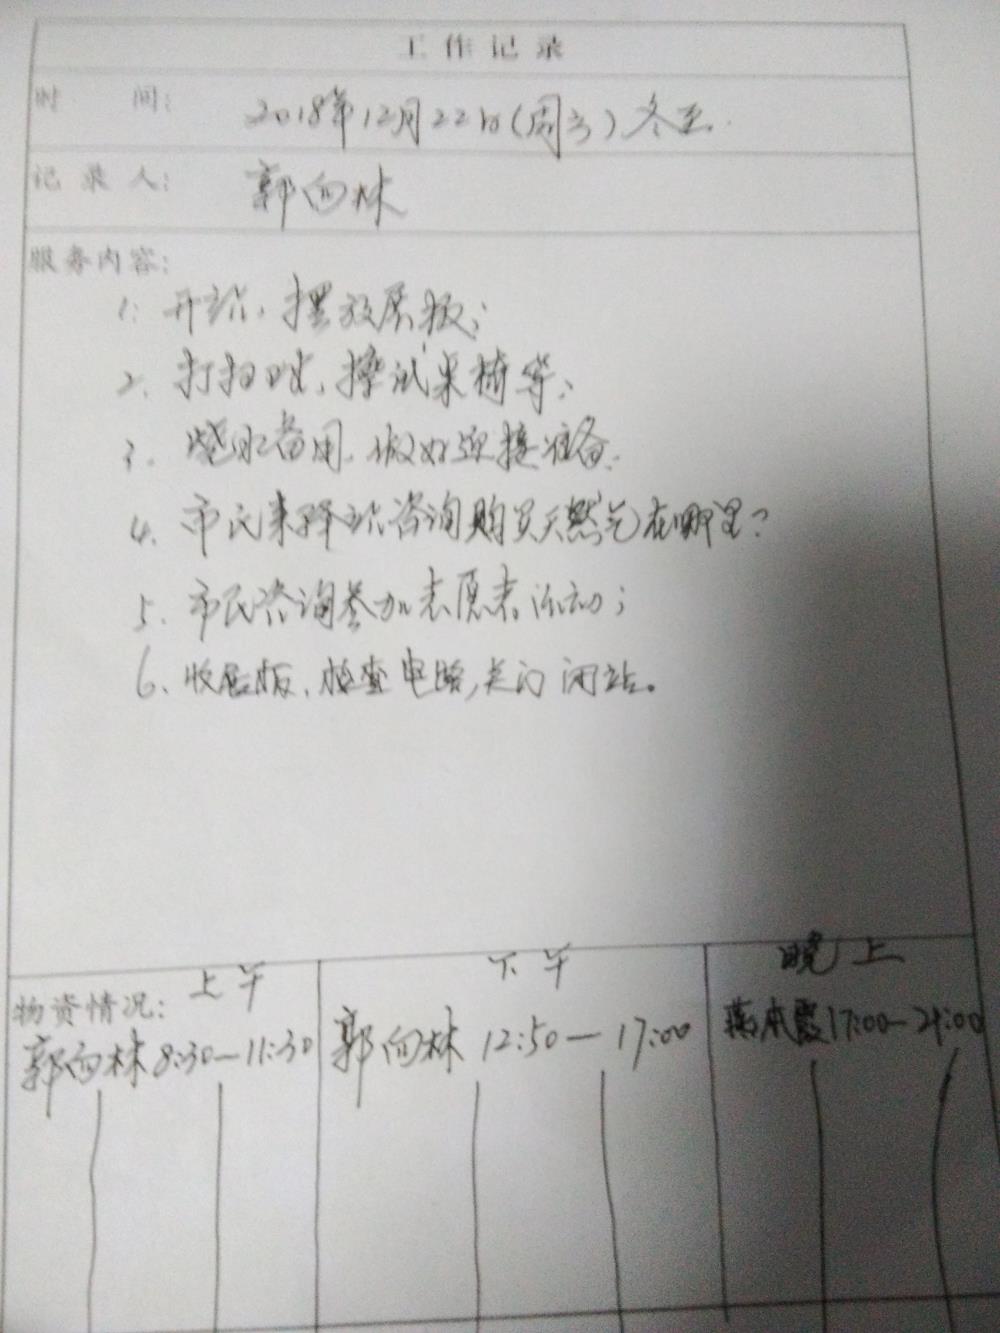 工作记录
时 间: 2018年12月22日(周六)冬至.
记 录 人: 郭向林
服务内容:
1. 开站,摆放展板;
2. 打扫卫生,擦试桌椅等;
3. 烧水备用,做好迎接准备.
4. 市民来驿站咨询购买天然气在哪里?
5. 市民咨询参加志愿者活动;
6、收展板、检查电路,关门闭站。
上午 下午 晚上
物资情况:
郭向林 8:30—11:30 郭向林 12:50—17:00 17:00—21:00